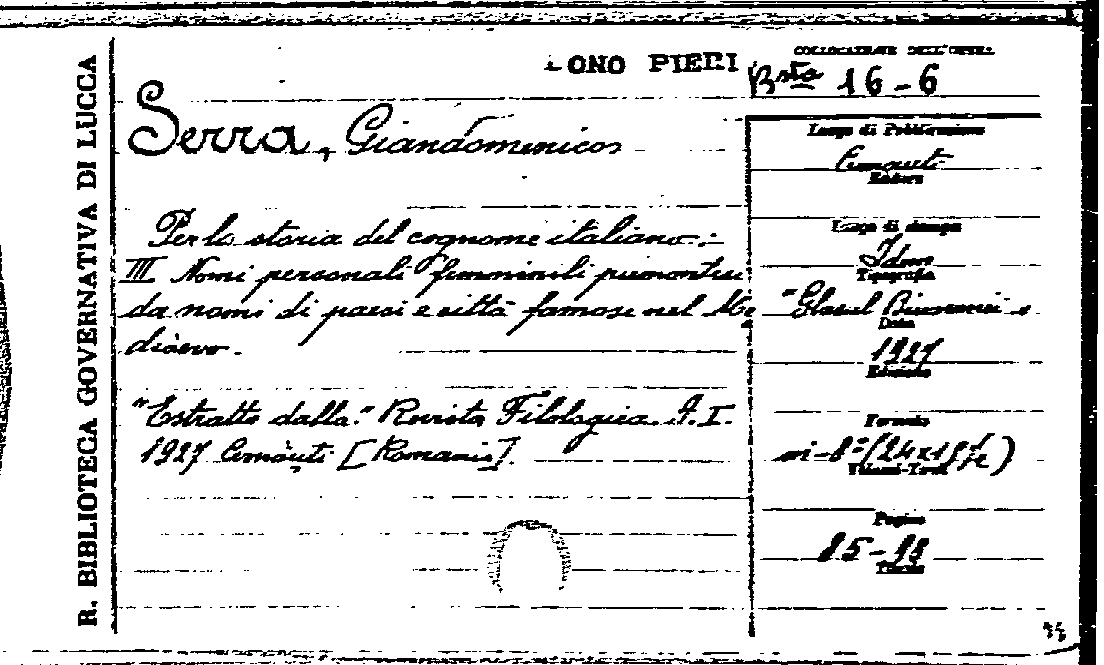 R. BIBLIOTECA GOVERNATIVA DI LUCCA
DONO PIERI
COLLOCAZIONE DELL'OPERA
Bsta 16-6
Serra, Giandomenico
Per la storia del cognome italiano:
III Nomi personali femminili piemontesi
da nomi di paesi e città famose nel Me
dioevo.
"Estratto dalla" Revista Filologica A. I.
1927 Cernăuti [Romania].
Luogo di Pubblicazione
Cernauti
Editore
Luogo di stampa
Idem
Tipografia
"Glasul Bucovinei"
Data
1927
Edizione
Formato
in-8° (24x
Volumi-Tomi
Pagine
85-98